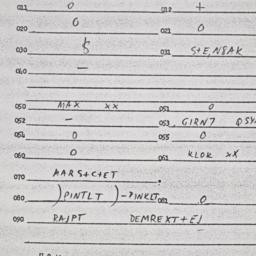 011 0 012 +
020 0 021 0
030 031 S+E,NSAK
040 —
050 MAX XX 051 0
052 — 053 GIRN7
054 0 055 0
060 0 061 KLOK XX
070 AARS+C+ET
080 )PINTLT )-PINKLT 082 0
090 RAJPT DEMREXT+EJ